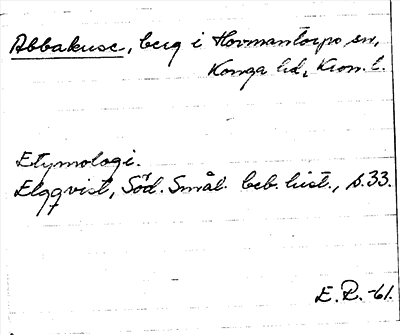 Abbakuse, berg i Hovmantorps sn,
Konga hd, Kron. l.
Etymologi.
Elgqvist, Söd. Smål. beb. hist., s. 33.
E. R. -61.